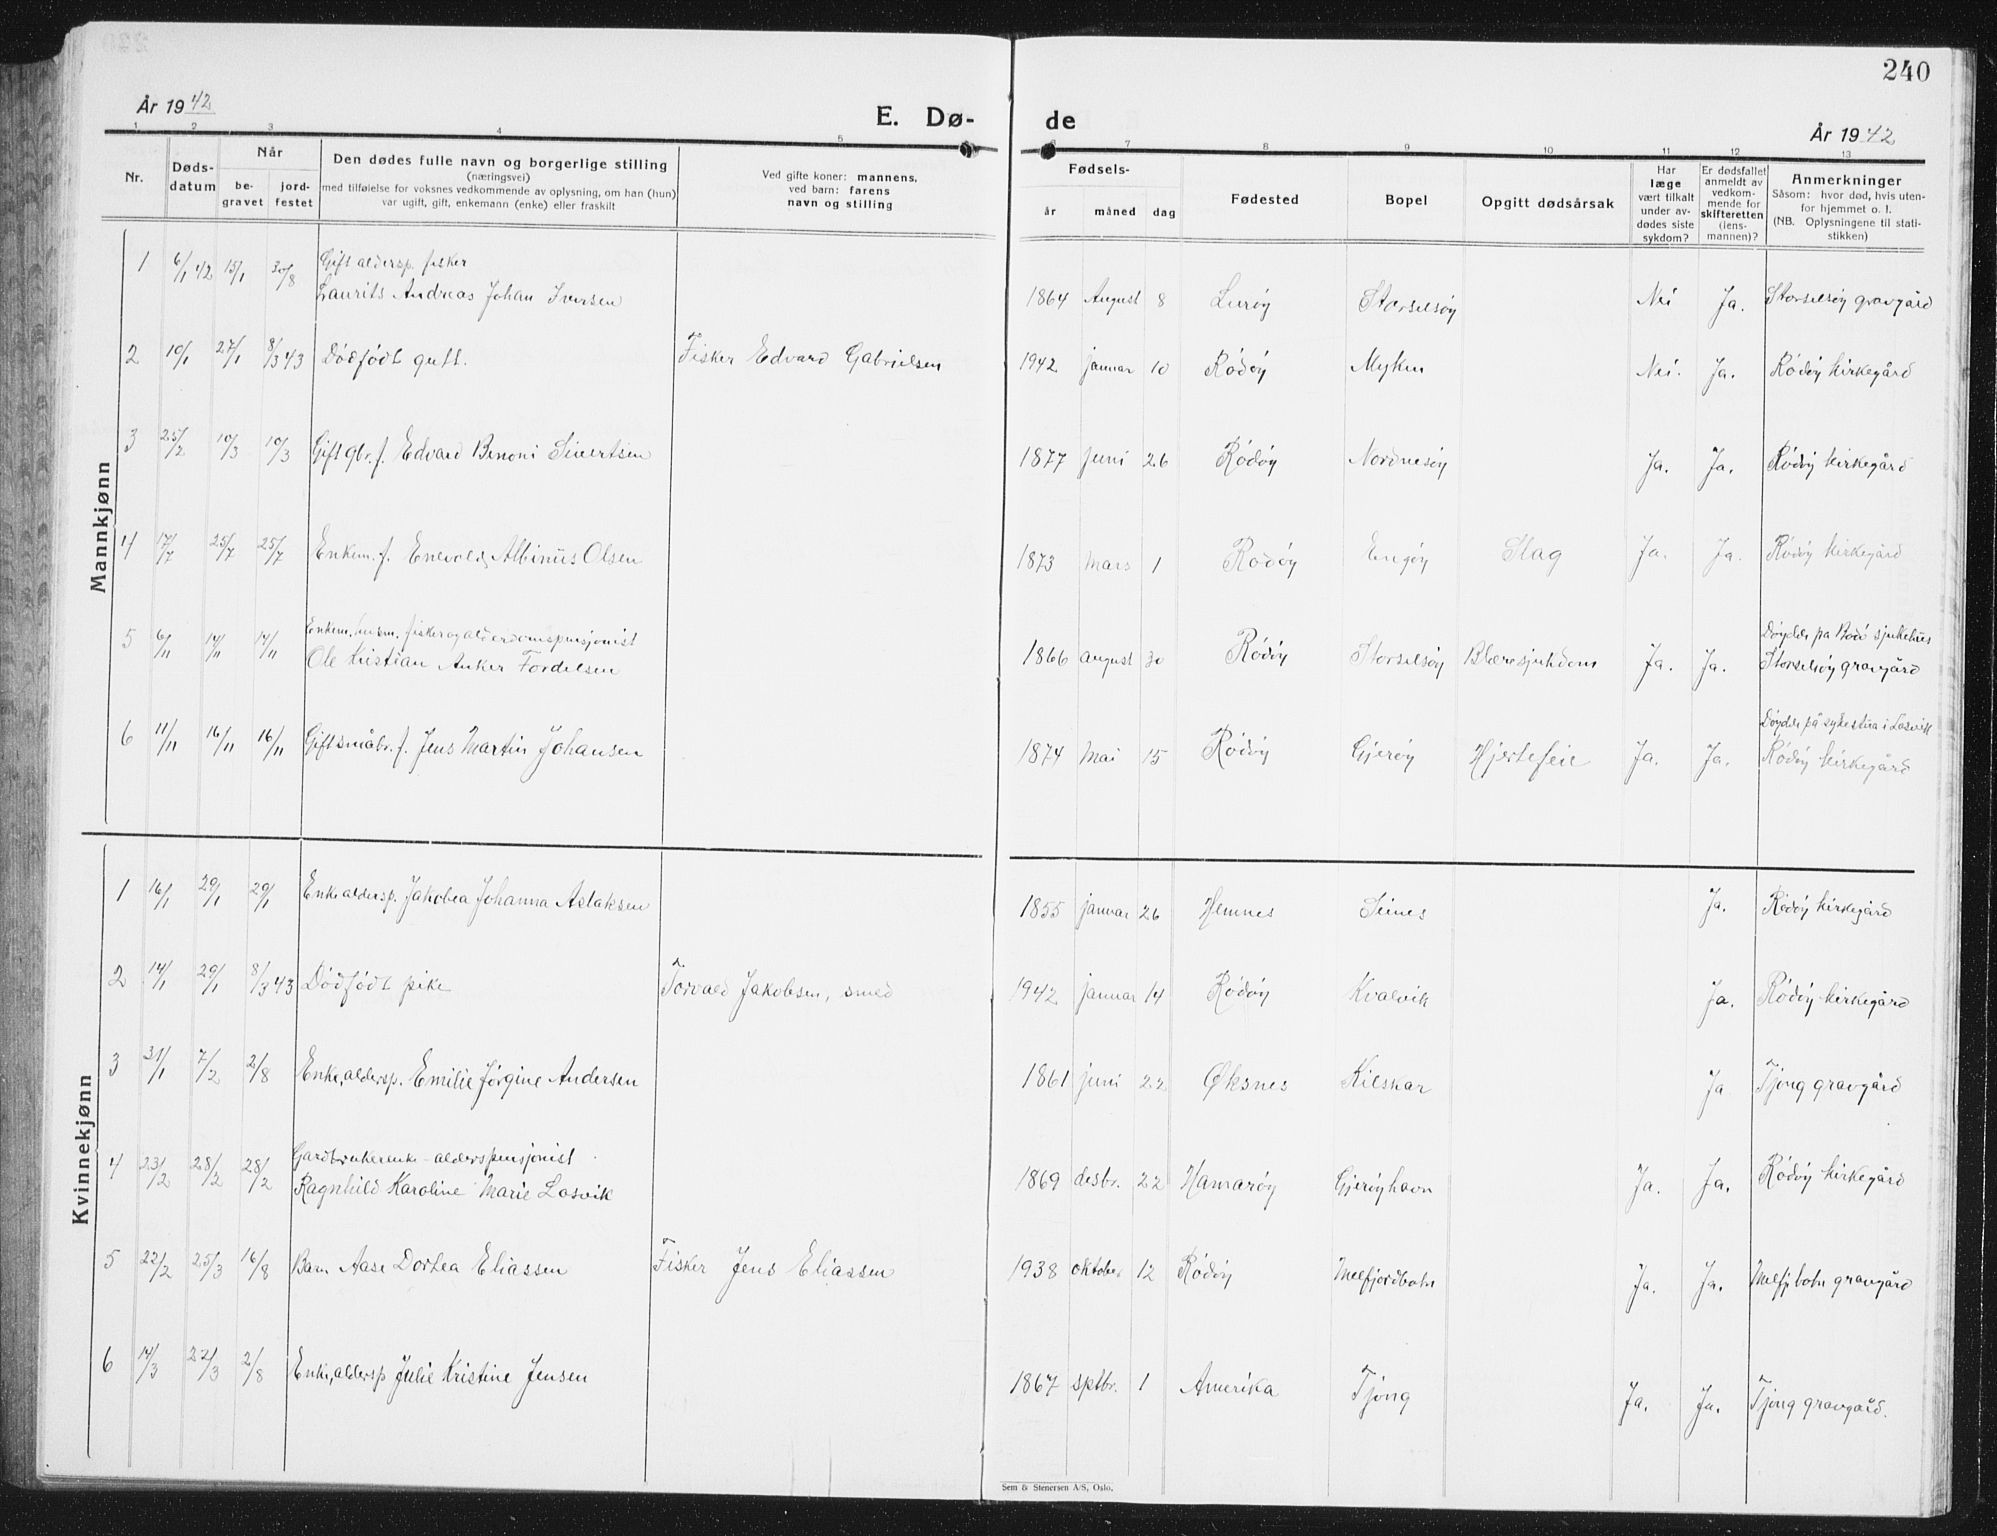 240
År 1942
E. Dø-
de
År 1942
1 2 3 4 5
6 7 8 9 10 11 12 13
Nr.
Døds-
datum
Når
be-
gravet
jord-
festet
Den dødes fulle navn og borgerlige stilling
(næringsvei)
med tilføielse for voksnes vedkommende av oplysning, om han (hun)
var ugift, gift, enkemann (enke) eller fraskilt
Ved gifte koner: mannens,
ved barn: farens
navn og stilling
Fødsels-
år måned dag
Fødested
Bopel
Opgitt dødsårsak
Har
læge
vært tilkalt
under av-
dødes siste
sykdom?
Er dødsfallet
anmeldt av
vedkom-
mende for
skifteretten
(lens-
mannen)?
Anmerkninger
Såsom: hvor død, hvis uten-
for hjemmet o. l.
(NB. Oplysningene til stati-
stikken)
Mannkjønn
1 6/1 42 15/1 30/8 Gift aldersp. fisker
Laurits Andreas Johan Iversen 1864 August 8 Lurøy Storselsøy Nei Ja. Storselsøy gravgård
2 10/1 27/1 8/3 43 Dødfødt gutt. Fisker Edvard Gabrielsen 1942 januar 10 Rödöy Myken Nei. Ja. Rödöy kirkegård
3 25/2 10/3 10/3 Gift gbr. f. Edvard Benoni Sivertsen 1877 juni 26 Rödöy Nordnesöy Ja. Ja. Rödöy kirkegård
4 17/7 25/7 25/7 Enkem. f. Enevold Albinus Olsen 1873 Mars 1 Rödöy Engöy Slag Ja. Ja. Rödöy kirkegård
5 6/11 14/11 14/11 Enkem. husm. fisker og alderdomspensjonist Döydde på Bodö sjukehus
Ole Kristian Anker Fordelsen 1866 august 30 Rödöy Storselsöy Blæresjukdom Ja. Ja. Storselsöy gravgård
6 11/11 16/11 16/11 Gift småbr. f. Jens Martin Johansen 1874 Mai 15 Rödöy Gjeröy Hjertefeil Ja. Ja. Döydde på sykestua i Losvik
Rödöy kirkegård
Kvinnekjønn
1 16/1 29/1 29/1 Enke aldersp. Jakobea Johanna Aslaksen 1855 januar 26 Hemnes Seines Ja. Rödöy kirkegård
2 14/1 29/1 8/3 43 Dödfödt pike Torvald Jakobsen, smed 1942 januar 14 Rödöy Kvalvik Ja. Rödöy kirkegård
3 31/1 7/2 2/8 Enke, aldersp. Emilie Jörgine Andersen 1861 juni 22 Øksnes Kilskar Ja Tjong gravgård
4 23/2 28/2 28/2 Gardbrukerenke - alderspensjonist
Ragnhild Karoline Marie Losvik 1869 desbr. 22 Hamaröy Gjeröyhavn Ja. Ja. Rödöy kirkegård
5 22/2 25/3 16/8 Barn Aase Dortea Eliassen Fisker Jens Eliassen 1938 oktober 12 Rödöy Melfjordbotn Ja. Ja. Melfj.botn gravgård
6 14/3 22/3 2/8 Enke, aldersp Julie Kristine Jensen 1867 sptbr. 1 Amerika Tjong Ja. Ja. Tjong gravgård.
Sem & Stenersen A/S, Oslo.